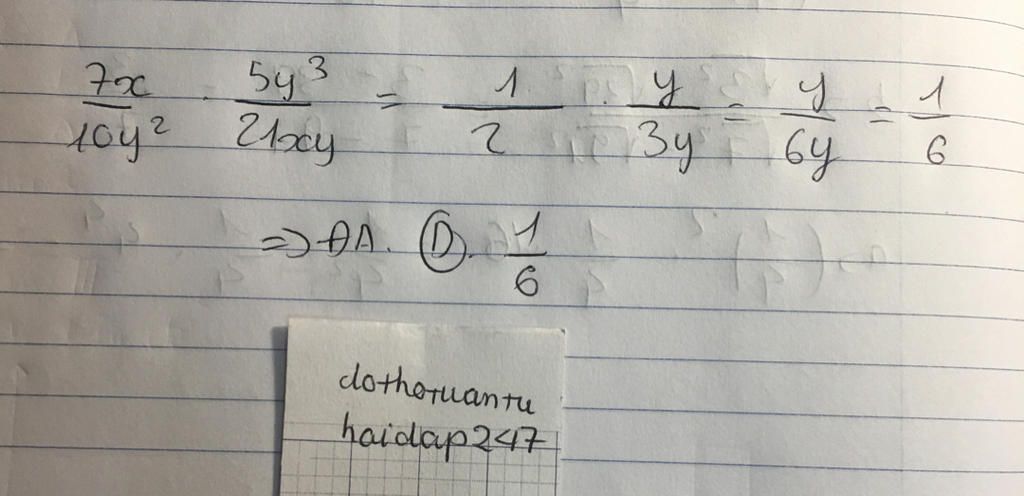 7x/10y² · 5y³/21xy = 1/2 · y/3y = y/6y = 1/6
=> ĐA. D. 1/6
dothotuantu
haidap247